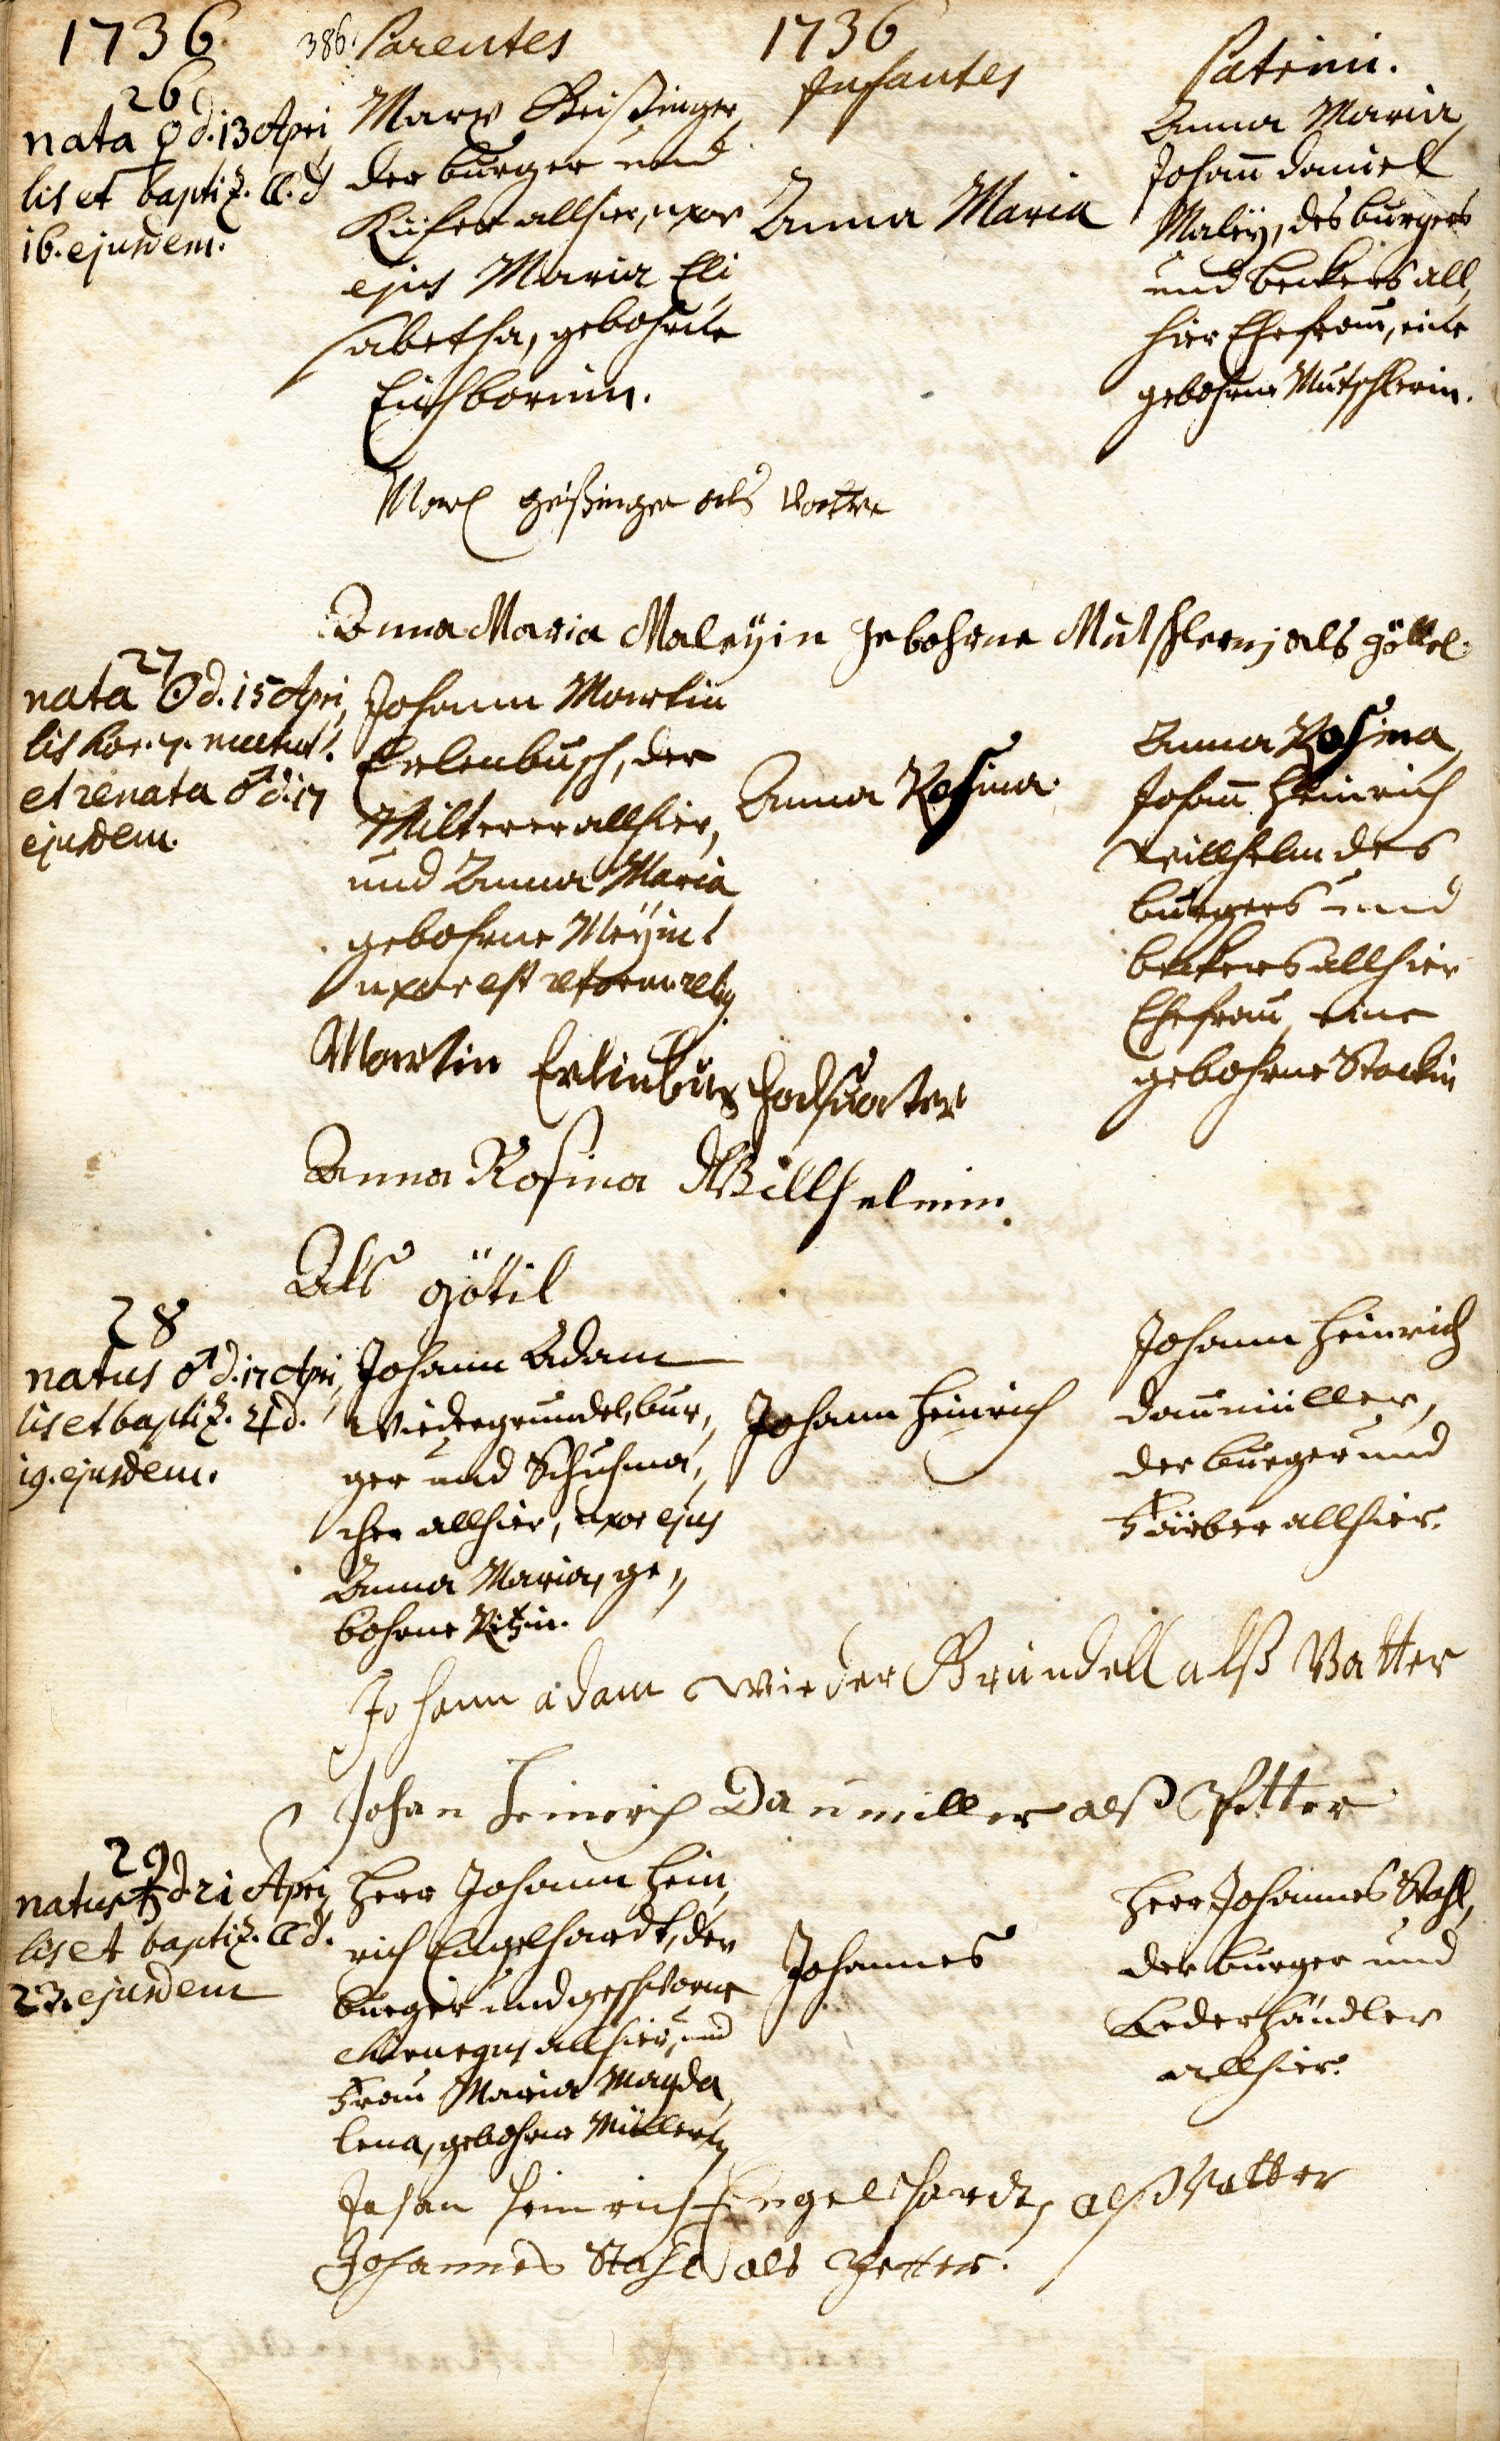 1736.
386. Parentes
1736
Infantes
Patrini.
26
nata ♀ d. 13 Apri,
lis et baptiz. ☾. d
16. ejusdem.
Marx Geißinger,
der burger und
Küfer allhier, uxor
ejus Maria Eli,
sabetha, gebohrne
Eichbornin.
Anna Maria
Anna Maria,
Johann Daniel
Maleÿ, des burgers
und beckers all,
hier Ehefrau, eine
gebohrne Mutschlerin.
Marx geißinger als vatter
Anna Maria Maleÿin gebohrne Mutschlerin als göttel.
27
nata ☉ d. 15 Apri,
lis hor. matut.
et renata ♂ d. 17
ejusdem.
Johann Martin
Erlenbusch, der
allhier,
und Anna Maria
gebohrne Meÿin
uxor est reform. relig.
Anna Rosina.
Anna Rosina,
Johann Heinrich
Willhelm des
burgers und
beckers allhier
Ehefrau eine
gebohrne Stockin
Martin
Anna Rosina Willhelmin.
Als götil
28
natus ♂ d. 17 Apri,
lis et baptiz. ♃ d.
19. ejusdem.
Johann Adam
Wiedergrundel, bur,
ger und Schuhma,
cher allhier, uxor ejus
Anna Maria, ge,,
bohrne Ritzin.
Johann Heinrich
Johann Heinrich
Daumüller,
der burger und
Färber allhier.
Johann adam wieder Gründell alß Vatter
Johan Heinrich Daumiller alß Pfetter
29
natus ♄ d 21 Apri,
lis et baptiz. ☾ d.
23. ejusdem
Herr Johann Hein,
rich Engelhardt, der
burger und geschworne
Chirurgus allhier, und
Frau Maria Magda,
lena, gebohrne Müllerin
Johannes
Herr Johannes Stahl,
der burger und
Lederhändler
allhier.
Johan Heinrich Engelhardt, alß Vatter
Johannes Stahl als Pfetter.